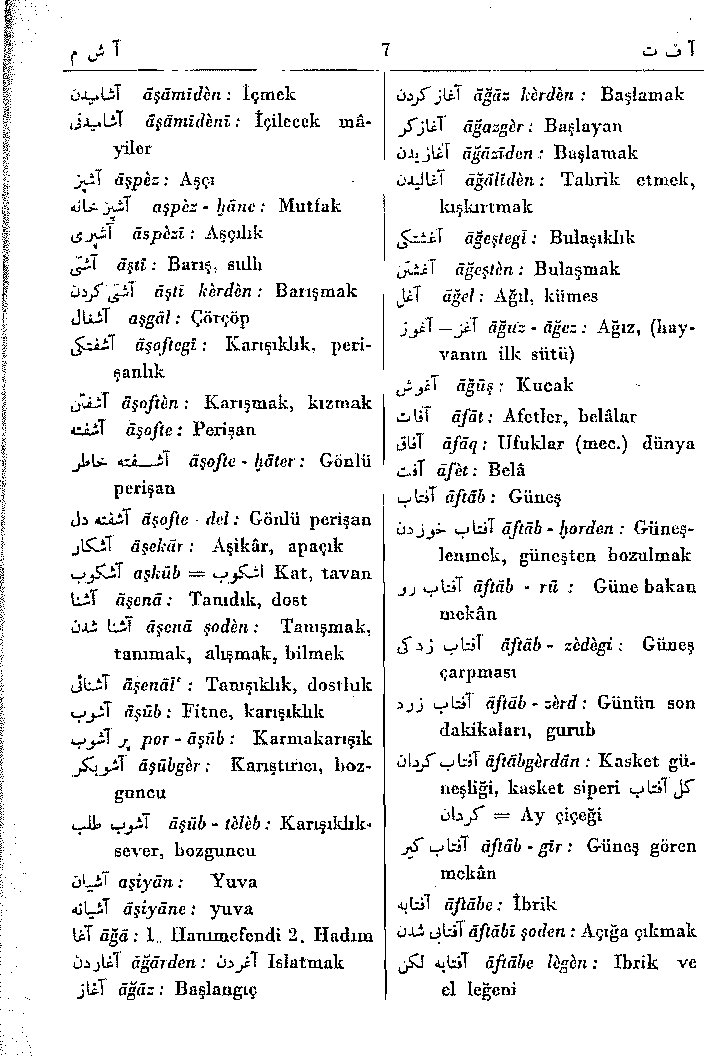 آ ش م 7 آ ف ت
آشامیدن āşāmīdèn : İçmek
آشامیدنی āşāmīdènī : İçilecek mâ-
yiler
آشپز āşpèz : Aşçı
آشپز خانه aşpèz - ḫāne : Mutfak
آشپزی āspèzī : Aşçılık
آشتی āştī : Barış, sulh
آشتی کردن āştī kèrdèn : Barışmak
آشغال aşgāl : Çörçöp
آشفتگی āşoftegī : Karışıklık, peri-
şanlık
آشفتن āşoftèn : Karışmak, kızmak
آشفته āşofte : Perişan
آشفته خاطر āşofte - ḫāter : Gönlü
perişan
آشفته دل āşofte - del : Gönlü perişan
آشکار āşekār : Aşikâr, apaçık
آشکوب aşkūb = اشکوب Kat, tavan
آشنا āşenā : Tanıdık, dost
آشنا شدن āşenā şodèn : Tanışmak,
tanımak, alışmak, bilmek
آشنائی āşenāī' : Tanışıklık, dostluk
آشوب āşūb : Fitne, karışıklık
پر آشوب por - āşūb : Karmakarışık
آشوبگر āşūbgèr : Karıştırıcı, boz-
guncu
آشوب طلب āşūb - tèlèb : Karışıklık-
sever, bozguncu
آشیان aşiyān : Yuva
آشیانه āşiyāne : yuva
آغا āğā : 1. Hanımefendi 2. Hadım
آغاردن āğārden : آغردن Islatmak
آغاز āğāz : Başlangıç
آغاز کردن āğāz kèrdèn : Başlamak
آغازگر āğazgèr : Başlayan
آغازیدن āğāzīden : Başlamak
آغالیدن āğālīdèn : Tahrik etmek,
kışkırtmak
آغشتگی āğeştegī : Bulaşıklık
آغشتن āğeştèn : Bulaşmak
آغل āğel : Ağıl, kümes
آغز – آغوز āğuz - āğez : Ağız, (hay-
vanın ilk sütü)
آغوش āğūş : Kucak
آفات āfāt : Afetler, belâlar
آفاق āfāq : Ufuklar (mec.) dünya
آفت āfèt : Belâ
آفتاب āftāb : Güneş
آفتاب خوردن āftāb - ḫorden : Güneş-
lenmek, güneşten bozulmak
آفتاب رو āftāb - rū : Güne bakan
mekân
آفتاب زدگی āftāb - zèdègi : Güneş
çarpması
آفتاب زرد āftāb - zèrd : Günün son
dakikaları, gurub
آفتاب گردان āftābgèrdān : Kasket gü-
neşliği, kasket siperi گل آفتاب
گردان = Ay çiçeği
آفتاب گیر āftāb - gīr : Güneş gören
mekân
آفتابه āftābe : İbrik
آفتابی شدن āftābī şoden : Açığa çıkmak
آفتابه لگن āftābe lègèn : Ibrik ve
el leğeni